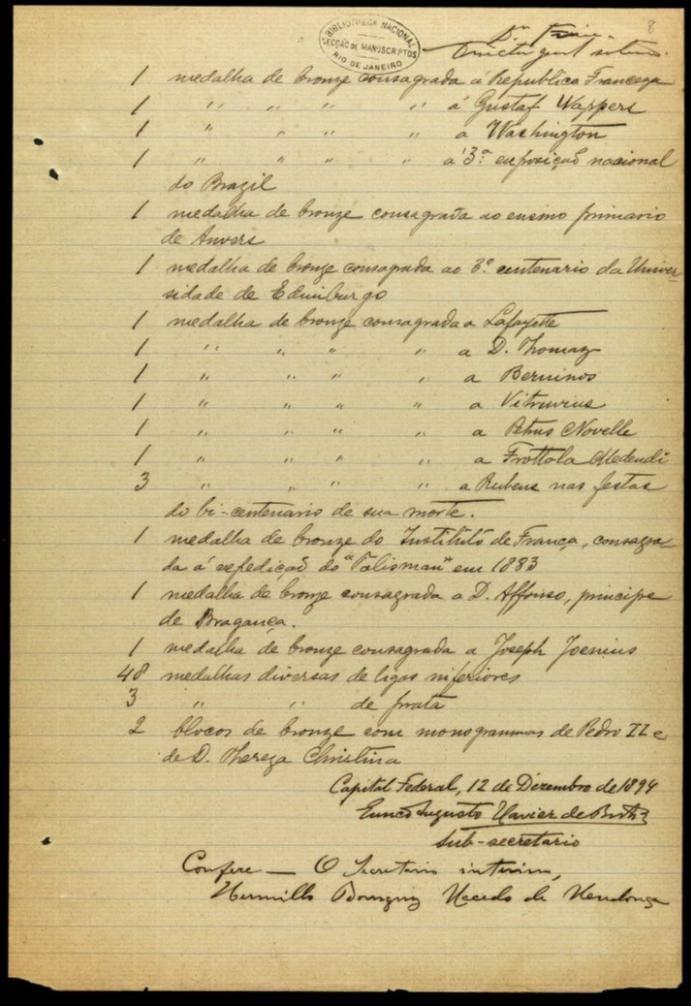 8
BIBLIOTHECA NACIONAL
SECÇÃO DE MANUSCRIPTOS
RIO DE JANEIRO
1 medalha de bronze consagrada á Republica Franceza
1 " " " " á Gustaf Wappers
1 " " " " a Washington
1 " " " " a 3ª exposição nacional
do Brazil
1 medalha de bronze consagrada ao ensino primario
de Anvers
1 medalha de bronze consagrada ao 3º centenario da Univer-
sidade de Edimburgo
1 medalha de bronze consagrada a Lafayette
1 " " " " a D. Thomaz
1 " " " " a Berninos
1 " " " " a Vitruvius
1 " " " " a Petrus Novelle
1 " " " " a Frottola
3 " " " " a Rubens nas festas
do bi-centenario de sua morte.
1 medalha de bronze do Instituto de França, consagra-
da á expedição do "Talisman" em 1883
1 medalha de bronze consagrada a D. Affonso, principe
de Bragança.
1 medalha de bronze consagrada a Joseph Joenius
48 medalhas diversas de ligas inferiores
3 " " de prata
2 blocos de bronze com monogrammas de Pedro II e
de D. Thereza Christina
Capital Federal, 12 de Dezembro de 1894
Augusto Xavier de
Sub-secretario
Confere — O Secretario interino,
de Mendonça